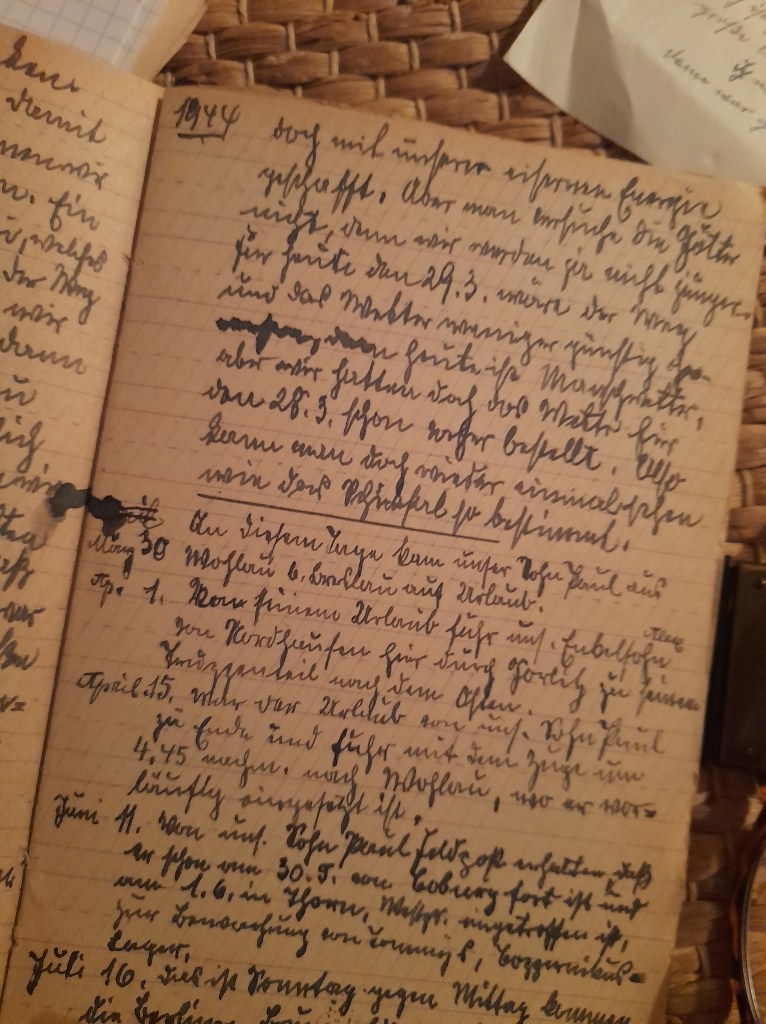 1944
doch mit unserer eisernen Energie
geschafft. Aber man versuche die Götter
nicht, denn wir werden ja nicht jünger.
Für heute den 29.3. wäre der Weg
und das Wetter weniger günstig
denn heute ist Manschwetter,
aber wir hatten doch das Wetter für
den 28.3. schon vorher bestellt. Also
kann man doch wieder einmal sehen
wie das Schicksal so bestimmt.
März 30 An diesem Tage kam unser Sohn Paul aus
Wohlau b. Breslau auf Urlaub.
Ap. 1. Von seinem Urlaub fuhr uns. Enkelsohn
von Nordhausen hier durch Görlitz zu seinem
Truppenteil nach dem Osten.
April 15. War der Urlaub von uns. Sohn Paul
zu Ende und fuhr mit dem Zuge um
4.45 nachm. nach Wohlau, wo er vor=
läufig eingesetzt ist.
Juni 11. Von uns. Sohn Paul Feldpost erhalten daß
er schon am 30.5. von Coburg fort ist und
am 1.6. in Thorn, Westpr. eingetroffen ist,
zur Bewachung von Tommys, Coppernikus=
Lager.
Juli 16. Das ist Sonntag gegen Mittag kommen
die Berliner
damit
Ein
welches
der Weg
wir
dann